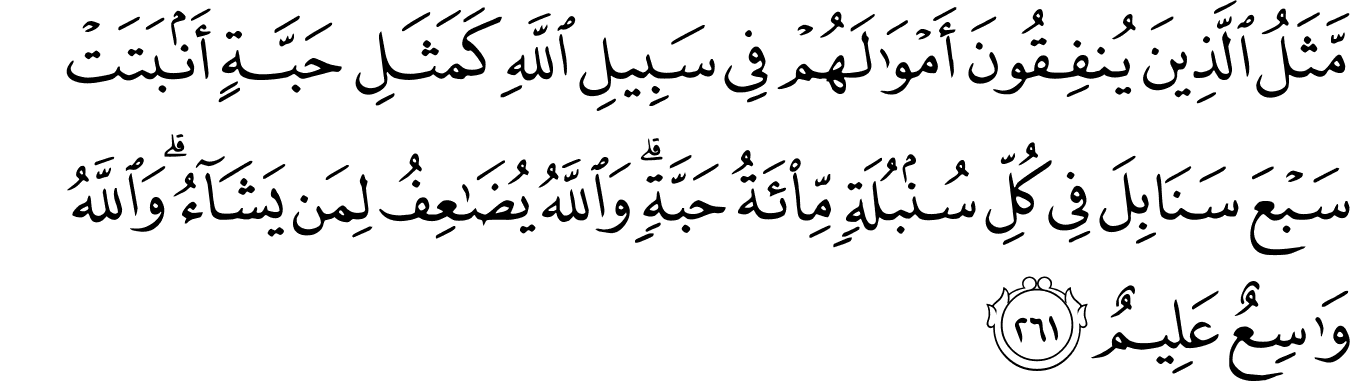 مَّثَلُ ٱلَّذِينَ يُنفِقُونَ أَمْوَٰلَهُمْ فِى سَبِيلِ ٱللَّهِ كَمَثَلِ حَبَّةٍ أَنۢبَتَتْ
سَبْعَ سَنَابِلَ فِى كُلِّ سُنۢبُلَةٍ مِّا۟ئَةُ حَبَّةٍ ۗ وَٱللَّهُ يُضَٰعِفُ لِمَن يَشَآءُ ۗ وَٱللَّهُ
وَٰسِعٌ عَلِيمٌ ٢٦١